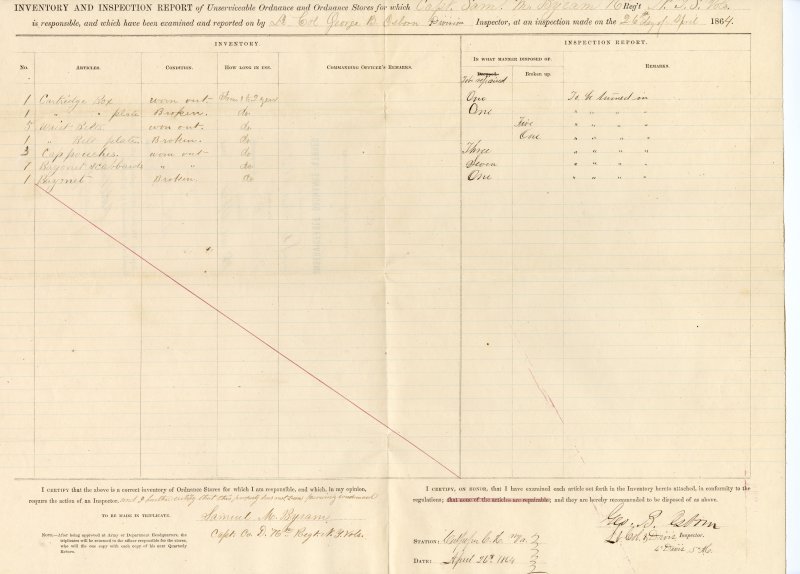 INVENTORY AND INSPECTION REPORT of Unserviceable Ordnance and Ordnance Stores for which Capt. Sam. M. Byram Reg't S. Vols.
is responsible, and which have been examined and reported on by Lt Col George B. Osborn Division Inspector, at an inspection made on the 26th day of April 1864.
INVENTORY. INSPECTION REPORT.
No. ARTICLES. CONDITION. HOW LONG IN USE. COMMANDING OFFICER'S REMARKS. IN WHAT MANNER DISPOSED OF. REMARKS.
Broken up.
To be repaired
1 Cartridge Box worn out from 1 to 2 years One To be turned in
1 " " plate Broken. do One " " " "
5 Waist Belts worn out. do Five " " " "
1 " Belt plate Broken. do One " " " "
3 Cap pouches. worn out do Three " " " "
7 Bayonet Scabbards " " do Seven " " " "
1 Bayonet Broken. do One " " " "
I CERTIFY that the above is a correct inventory of Ordnance Stores for which I am responsible, and which, in my opinion,
require the action of an Inspector, and I further certify that this property has not been previously condemned
TO BE MADE IN TRIPLICATE.
Samuel M. Byram
Capt. Co. D. Regt N.Y. Vols.
NOTE.—After being approved at Army or Department Headquarters, the
triplicates will be returned to the officer responsible for the stores,
who will file one copy with each copy of his next Quarterly
Return.
I CERTIFY, ON HONOR, that I have examined each article set forth in the Inventory hereto attached, in conformity to the
regulations; that none of the articles are repairable; and they are hereby recommended to be disposed of as above.
Geo. B. Osborn
Lt Col. & Divis Inspector.
STATION: Culpeper C.H. Va.
DATE: April 26th 1864